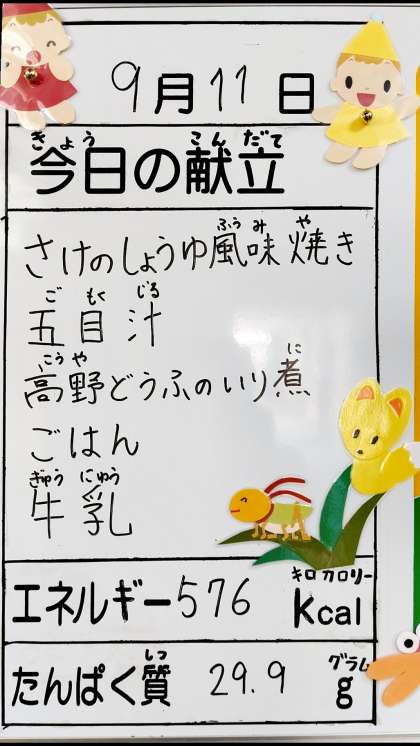 9月11日
きょう こんだて
今日の献立
ふうみ や
さけのしょうゆ風味焼き
ご もく じる
五目汁
こうや に
高野どうふのいり煮
ごはん
ぎゅう にゅう
牛乳
キロカロリー
エネルギー576 kcal
しつ グラム
たんぱく質 29.9 g